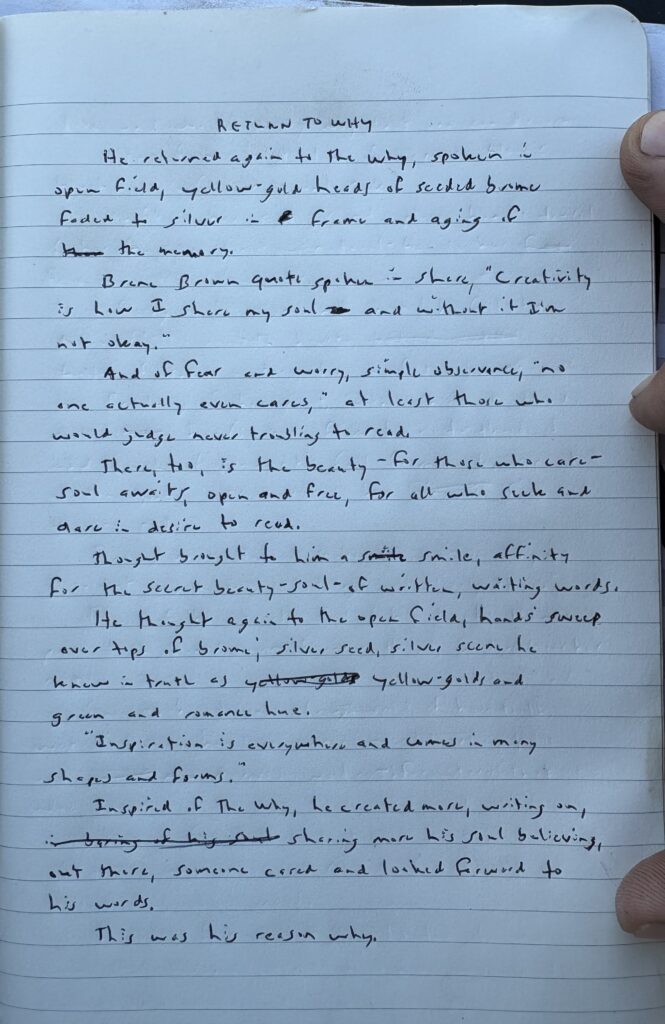 RETURN TO WHY
He returned again to the why, spoken in
open field, yellow-gold heads of seeded brome
faded to silver in frame and aging of
the memory.
Brene Brown quote spoken in share, "Creativity
is how I share my soul and without it I'm
not okay."
And of fear and worry, simple observance, "no
one actually even cares," at least those who
would judge never troubling to read.
There, too, is the beauty - for those who care -
soul awaits, open and free, for all who seek and
dare in desire to read.
Thought brought to him a smile, affinity
for the secret beauty-soul-of written, waiting words.
He thought again to the open field, hands' sweep
over tips of brome; silver seed, silver scene he
knew in truth as yellow-golds and
green and romance hue.
"Inspiration is everywhere and comes in many
shapes and forms."
Inspired of The Why, he created more, writing on,
sharing more his soul believing,
out there, someone cared and looked forward to
his words.
This was his reason why.